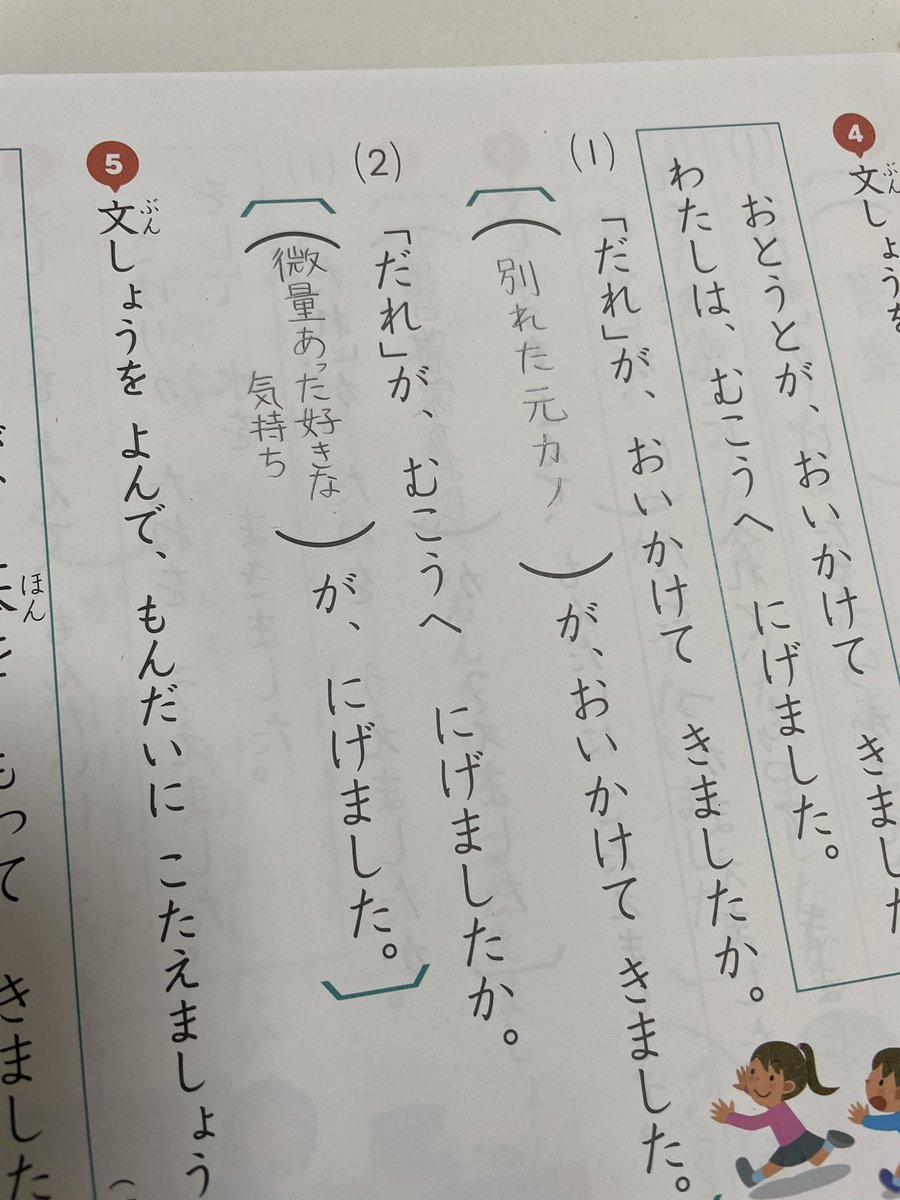 4
文しょうを
ぶん
おとうとが、おいかけて きました
わたしは、むこうへ にげました。
(1) 「だれ」が、おいかけて きましたか。
(別れた元カノ)が、おいかけて きました。
(2) 「だれ」が、むこうへ にげましたか。
(微量あった好きな
気持ち)が、にげました。
5
文しょうを よんで、もんだいに こたえましょう
ぶん
ほん
もって きました